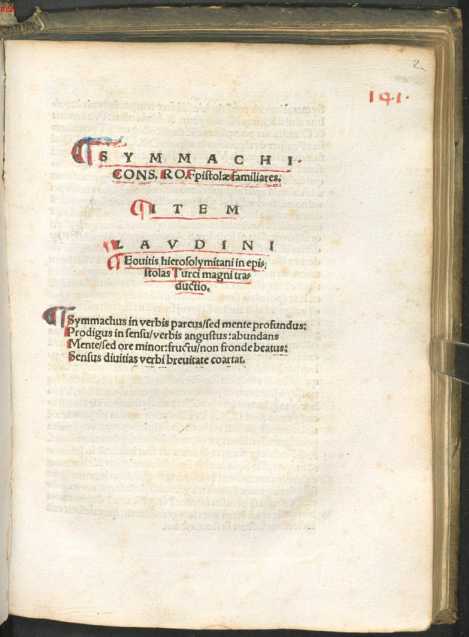 2
141.
SYMMACHI.
CONS. RO. Epistolæ familiares.
ITEM
LAVDINI
Eouitis hierosolymitani in epi-
stolas Turci magni tra-
ductio.
Symmachus in verbis parcus/sed mente profundus:
Prodigus in sensu/verbis angustus:abundans
Mente/sed ore minor:fructu/non fronde beatus:
Sensus diuitias verbi breuitate coartat.